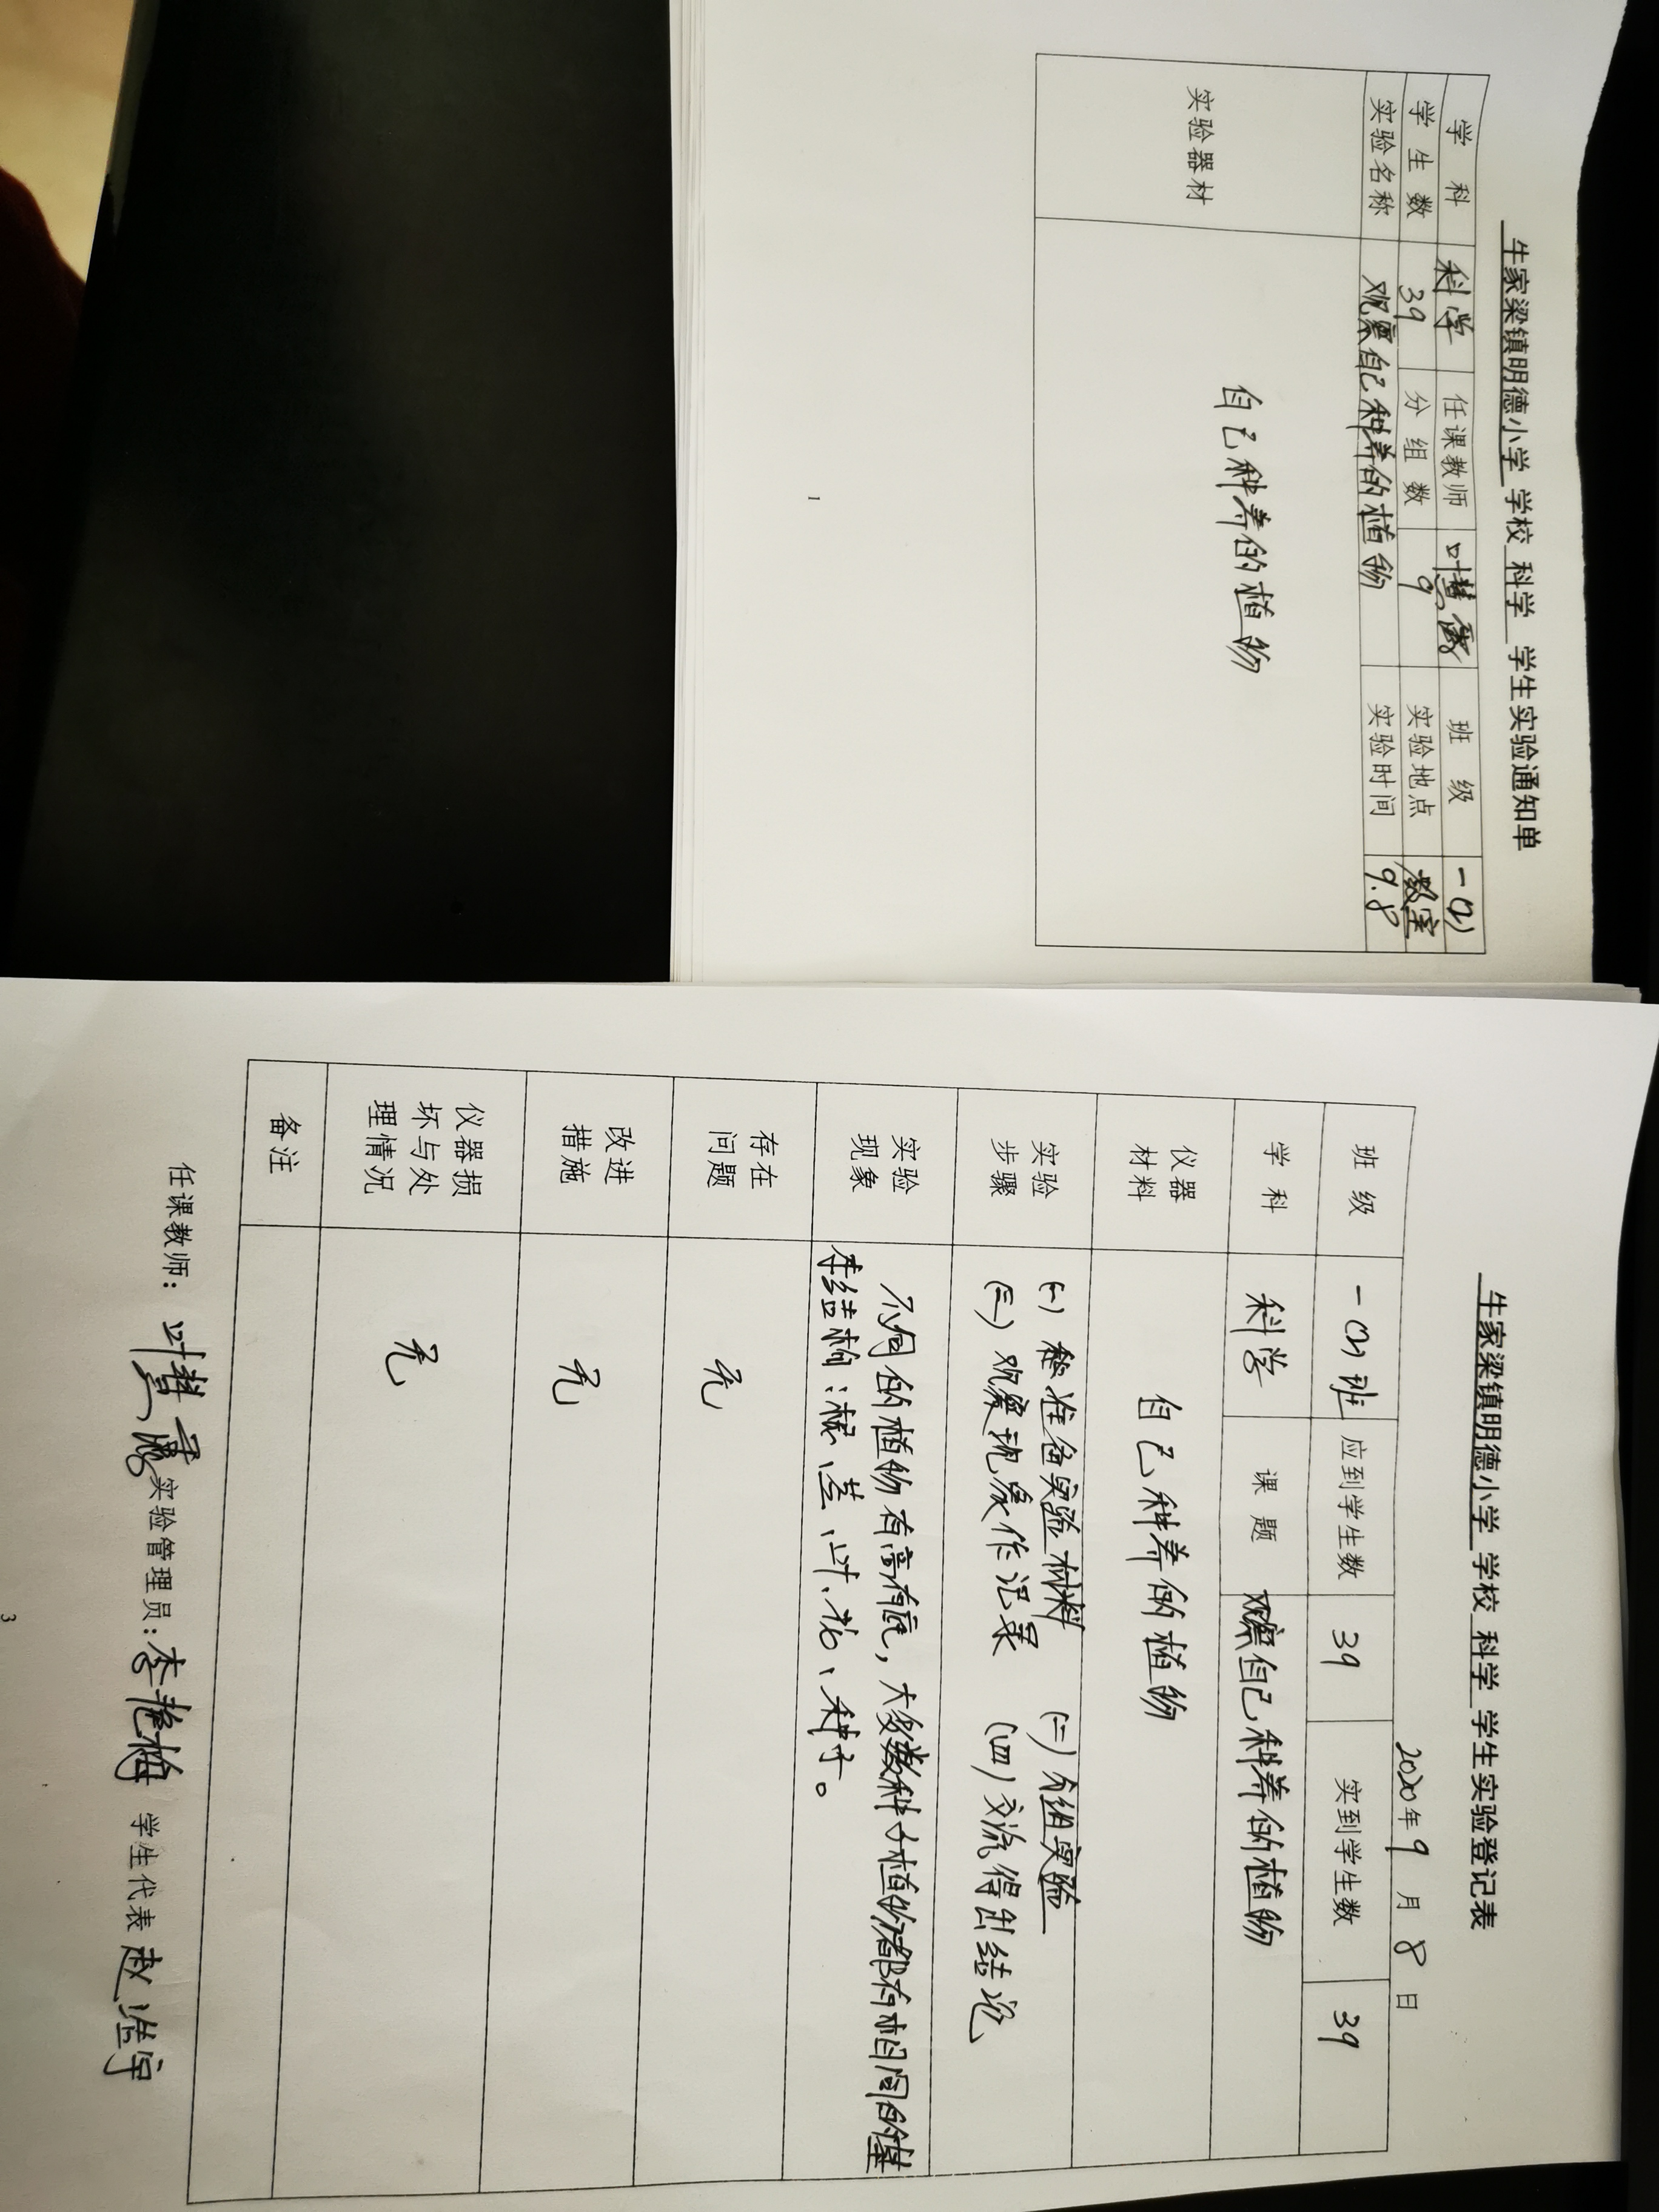 牛家梁镇明德小学 学校 科学 学生实验通知单
学 科 科学 任课教师 叶慧 班 级 一(2)
学 生 数 39 分 组 数 9 实验地点 教室
实验名称 观察自己种养的植物 实验时间 9.8
实验器材 自己种养的植物
1
牛家梁镇明德小学 学校 科学 学生实验登记表
2020年 9 月 8 日
班 级 一(2)班 应到学生数 39 实到学生数 39
学 科 科学 课 题 观察自己种养的植物
仪器
材料 自己种养的植物
实验
步骤
(一) 准备实验材料 (二) 分组实验
(三) 观察现象作记录 (四) 交流得出结论
实验
现象
不同的植物有高有底,大多数种子植物都有相同的基
本结构:根、茎、叶、花、种子。
存在
问题 无
改进
措施 无
仪器损
坏与处
理情况 无
备注
任课教师: 叶慧 实验管理员: 李艳梅 学生代表 赵
3